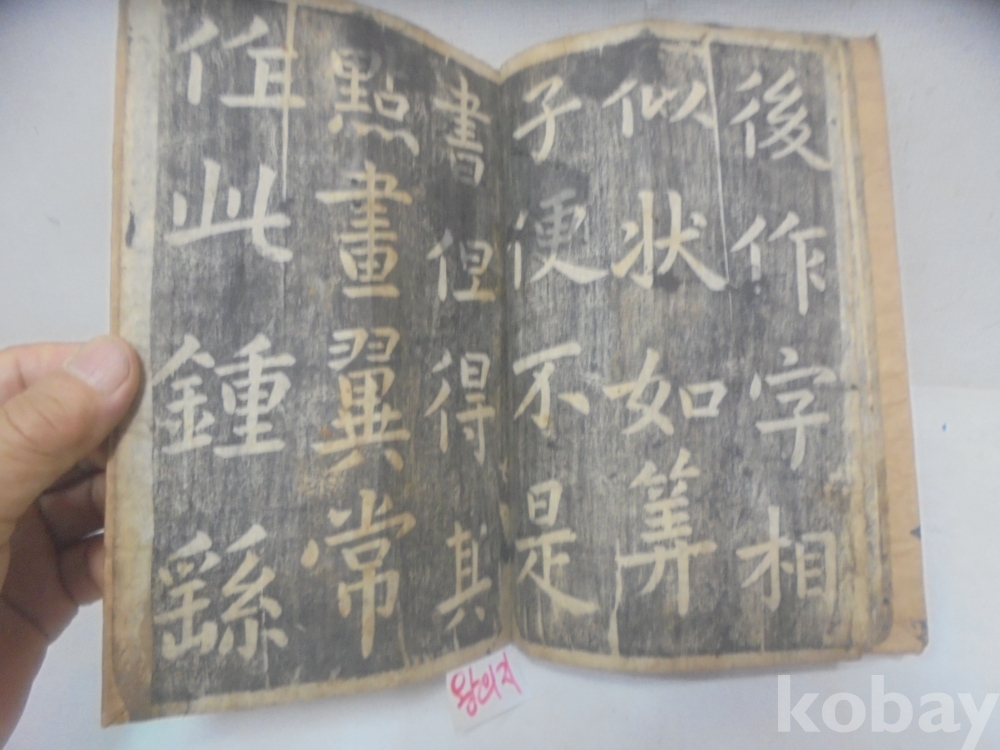 後作字相
似状如筭
子便不是
書但得其
點畫翼常
作此鍾繇
왕희지
kobay